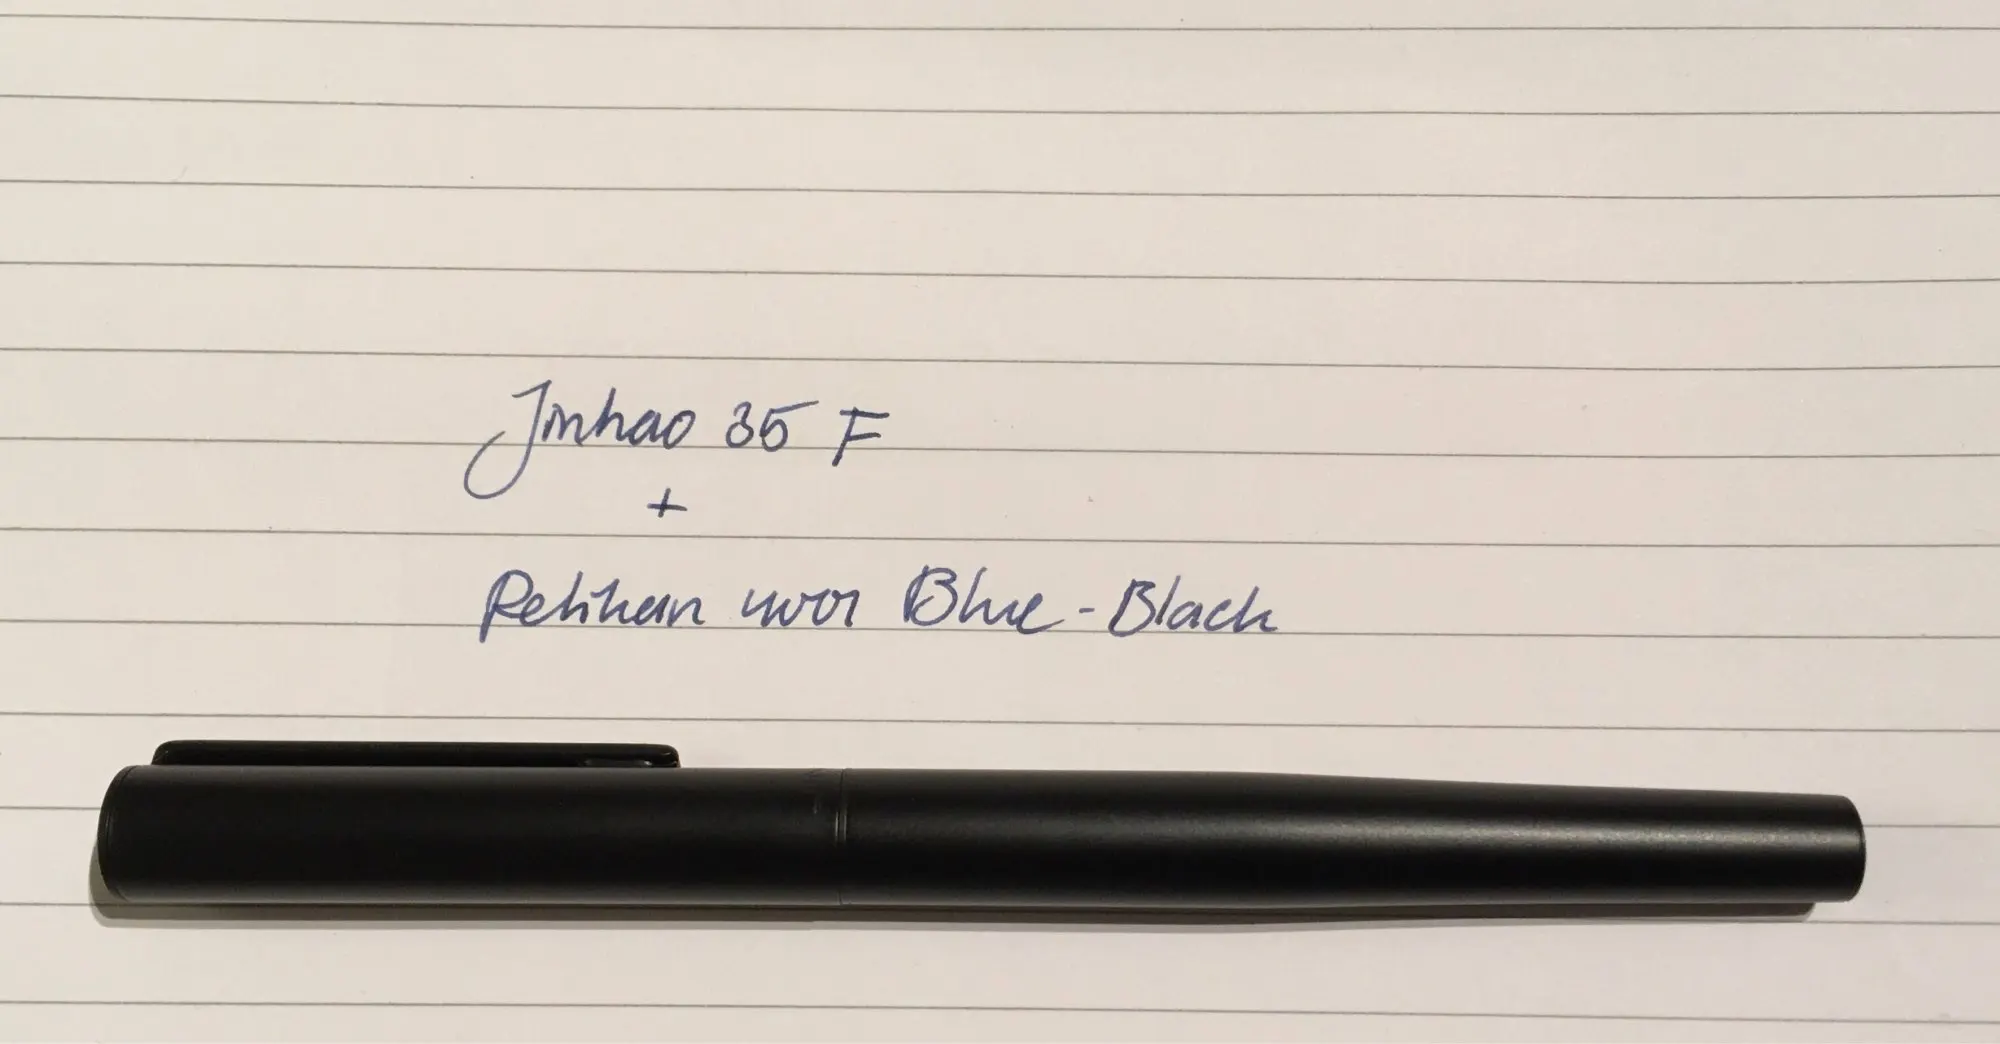 Jinhao 35 F
+
Pelikan 4001 Blue-Black